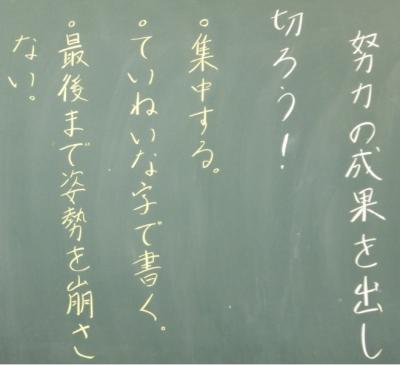 努力の成果を出し
切ろう！
。集中する。
。ていねいな字で書く。
。最後まで姿勢を崩さ
ない。